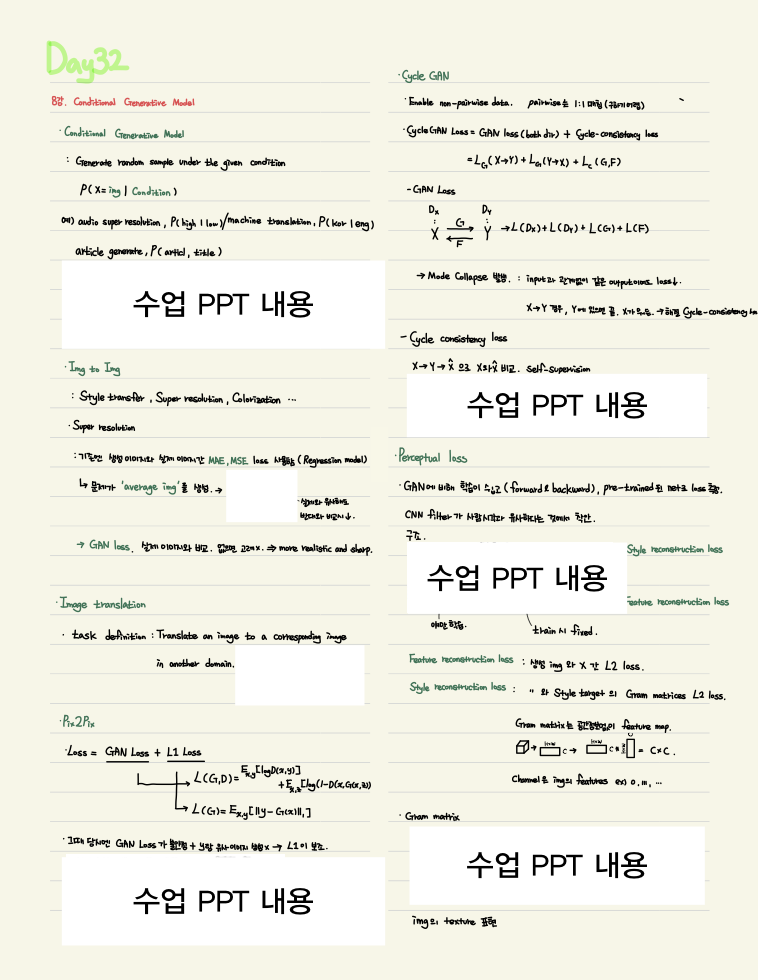 Day32
8강. Conditional Generative Model
· Conditional Generative Model
: Generate random sample under the given condition
P(X= img | Condition)
예) audio super resolution, P(high | low)/machine translation, P(kor | eng)
article generate, P(articl, title)
수업 PPT 내용
· Img to Img
: Style transfer, Super resolution, Colorization ...
· Super resolution
: 기존엔 생성 이미지와 실제 이미지간 MAE, MSE loss 사용함 (Regression model)
↳ 문제가 'average img'를 생성. →
· 실제와 유사해도
반대와 비교시↓.
→ GAN loss. 실제 이미지와 비교. 없으면 고려x. ⇒ more realistic and sharp.
· Image translation
· task definition : Translate an image to a corresponding image
in another domain.
· Pix2Pix
· Loss = GAN Loss + L1 Loss
→ L(G,D) = E_{x,y}[logD(x,y)]
+ E_{x,z}[log(1-D(x,G(x,z))
→ L(G) = E_{x,y}[||y-G(x)||₁]
· 그때 당시엔 GAN Loss가 불안정 + y랑 유사이미지 생성x → L1이 보조.
수업 PPT 내용
· Cycle GAN
· Enable non-pairwise data. pairwise는 1:1 매칭 (구하기 어렵)
· CycleGAN Loss = GAN loss (both dir) + Cycle-consistency loss
= L_G(X→Y) + L_G(Y→X) + L_c(G,F)
- GAN Loss
Dx Dy
X G F Y → L(Dx) + L(Dy) + L(G) + L(F)
→ Mode Collapse 발생. : input과 관계없이 같은 output이어도 loss↓.
X→Y 경우, Y에 있으면 끝. X가 →해결 Cycle-consistency
- Cycle consistency loss
X→Y→X̂ 으로 X와 X̂ 비교. Self-supervision
수업 PPT 내용
· Perceptual loss
· GAN에 비해 학습이 쉽고 (forward & backward), pre-trained된 net로 loss 측정.
CNN filter가 사람시각과 유사하다는 것에서 착안.
구조.
Style reconstruction loss
수업 PPT 내용
Feature reconstruction loss
얘만 학습.
train 시 fixed.
Feature reconstruction loss : 생성 img 와 X 간 L2 loss.
Style reconstruction loss : " 와 Style target 의 Gram matrices L2 loss.
Gram matrix는 공간정보없이 feature map.
→ HxW C → HxW C × HxW C = C×C.
Channel은 img의 features ex) 0, m, ...
· Gram matrix
수업 PPT 내용
img의 texture 표현